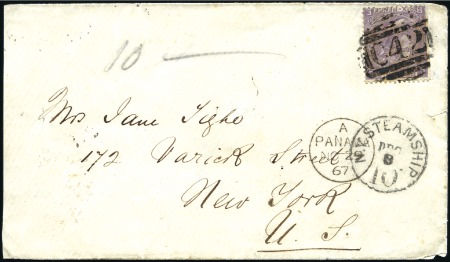 10
C42
Mrs Jane Tighe
172 Varick Street
New York
U. S.
A
PANAMA
67
N.Y. STEAMSHIP
DEC
8
10